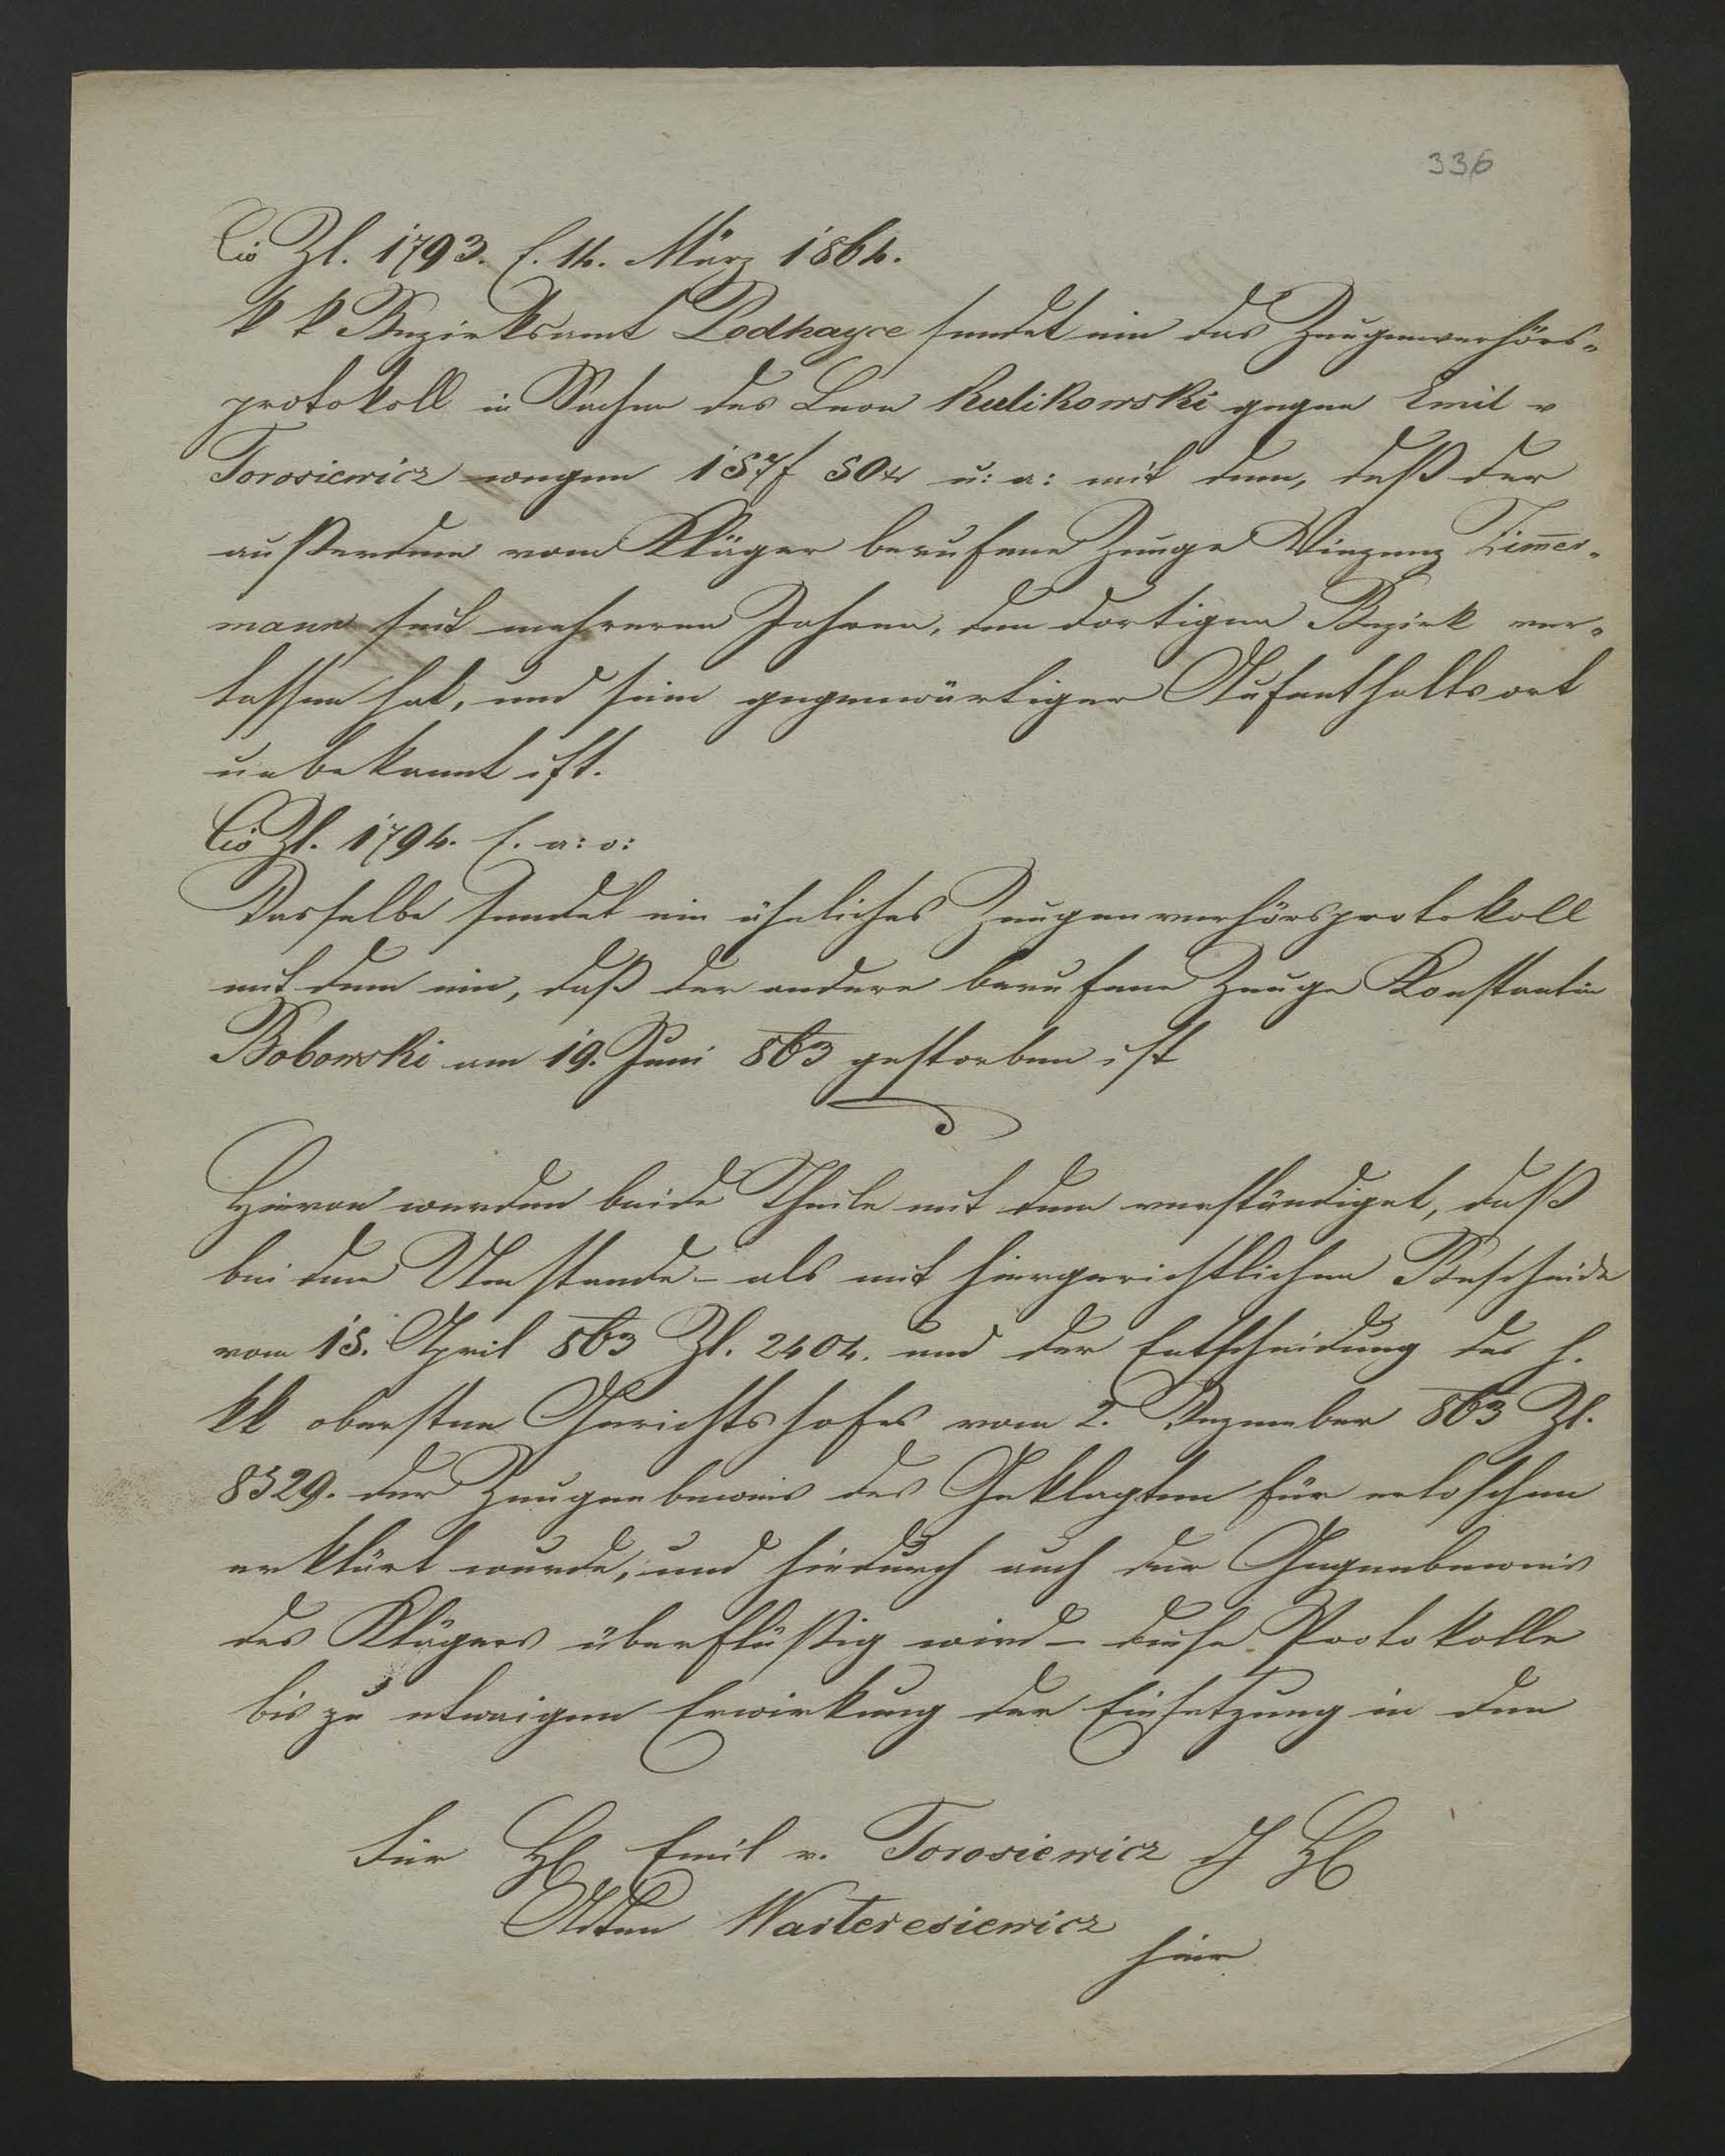 336
Civ Zl. 1793. E. 14. März 1864.
k k Bezirksamt Podhayce sendet ein das Zeugenverhörs-
protokoll in Sachen des Leon Kulikowski gegen Emil v
Torosiewicz wegen 157f 50xr u: a: mit dem, daß der
außerdem vom Kläger berufene Zeuge Vinzenz Zimer-
mann seit mehreren Jahren, den dortigen Bezirk ver-
lassen hat, und sein gegenwärtiger Aufenthaltsort
unbekannt ist.
Civ Zl. 1794. E. a: o:
Dasselbe sendet ein ähnliches Zeugenverhörsprotokoll
mit dem ein, daß der andere berufene Zeuge Konstantin
Bobowski am 19. Juni 863 gestorben ist
Hievon werden beide Theile mit dem verständiget, daß
bei dem Umstande – als mit hiergerichtlichen Bescheide
vom 15. April 863 Zl. 2404. und der Entscheidung des h.
kk obersten Gerichtshofes vom 2. Dezember 863 Zl.
8329. der Zeugenbeweis des Geklagten für erloschen
erklärt wurde, und hiedurch auch der Gegenbeweis
des Klägers überflüßig wird – diese Protokolle
bis zu etwaigen Erwirkung der Einsetzung in den
Für H Emil v. Torosiewicz
Adten Warteresiewicz
hier